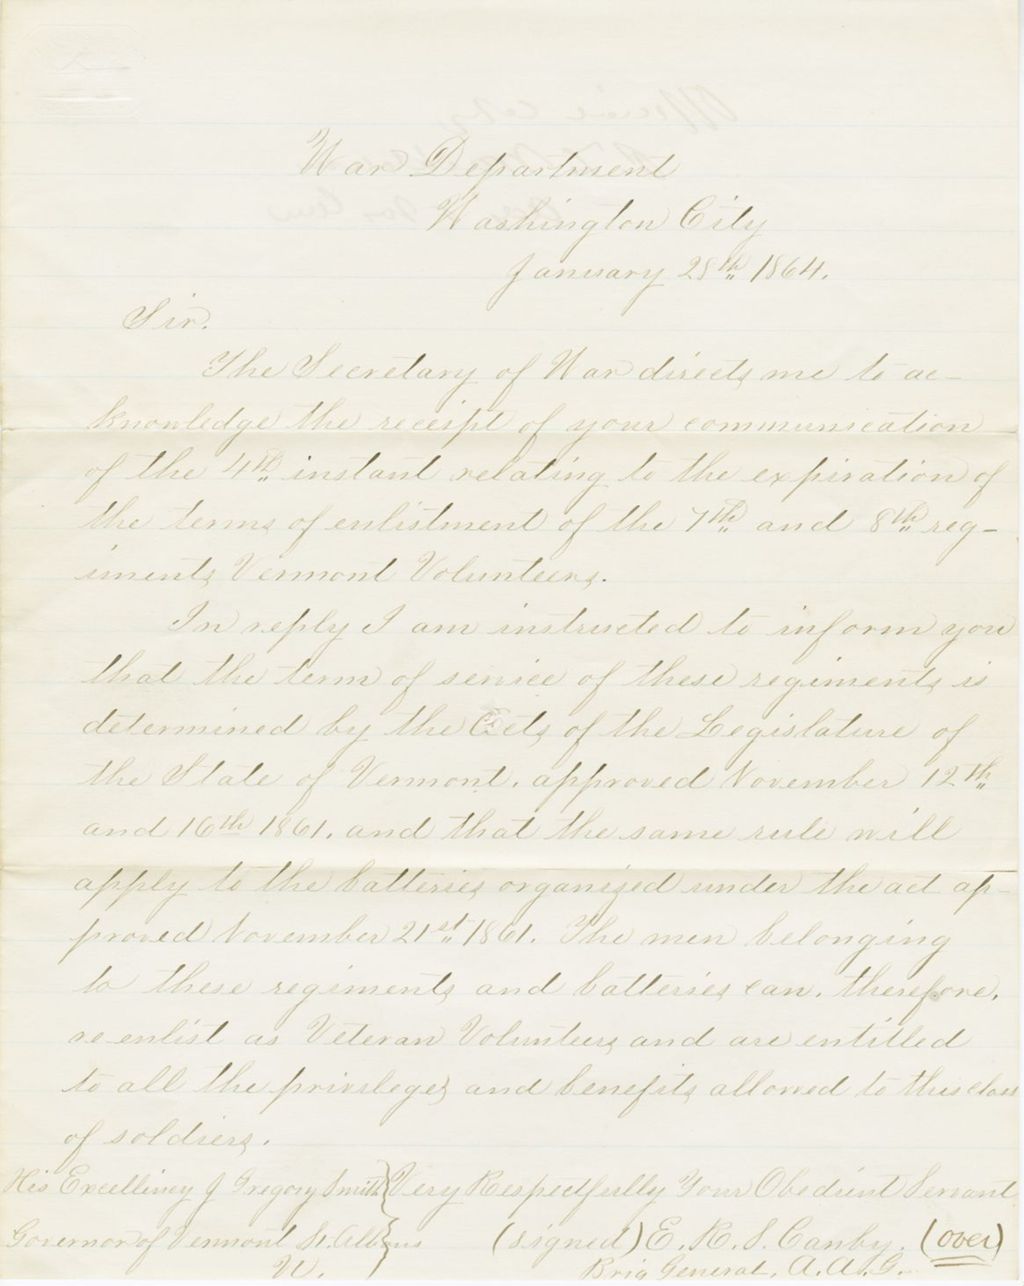 War Department
Washington City
January 28th 1864.
Sir.
The Secretary of War directs me to ac-
knowledge the receipt of your communication
of the 4th instant relating to the expiration of
the terms of enlistment of the 7th and 8th reg-
iments Vermont Volunteers.
In reply I am instructed to inform you
that the term of service of these regiments is
determined by the Acts of the Legislature of
the State of Vermont, approved November 12th
and 16th 1861, and that the same rule will
apply to the batteries organized under the act ap-
proved November 21st 1861. The men belonging
to these regiments and batteries can, therefore,
re enlist as Veteran Volunteers and are entitled
to all the privileges and benefits allowed to this class
of soldiers.
Very Respectfully Your Obedient Servant
(signed) E. R. S. Canby.
Brig General, A. A. G.
His Excellency J Gregory Smith
Governor of Vermont St. Albans
(over)